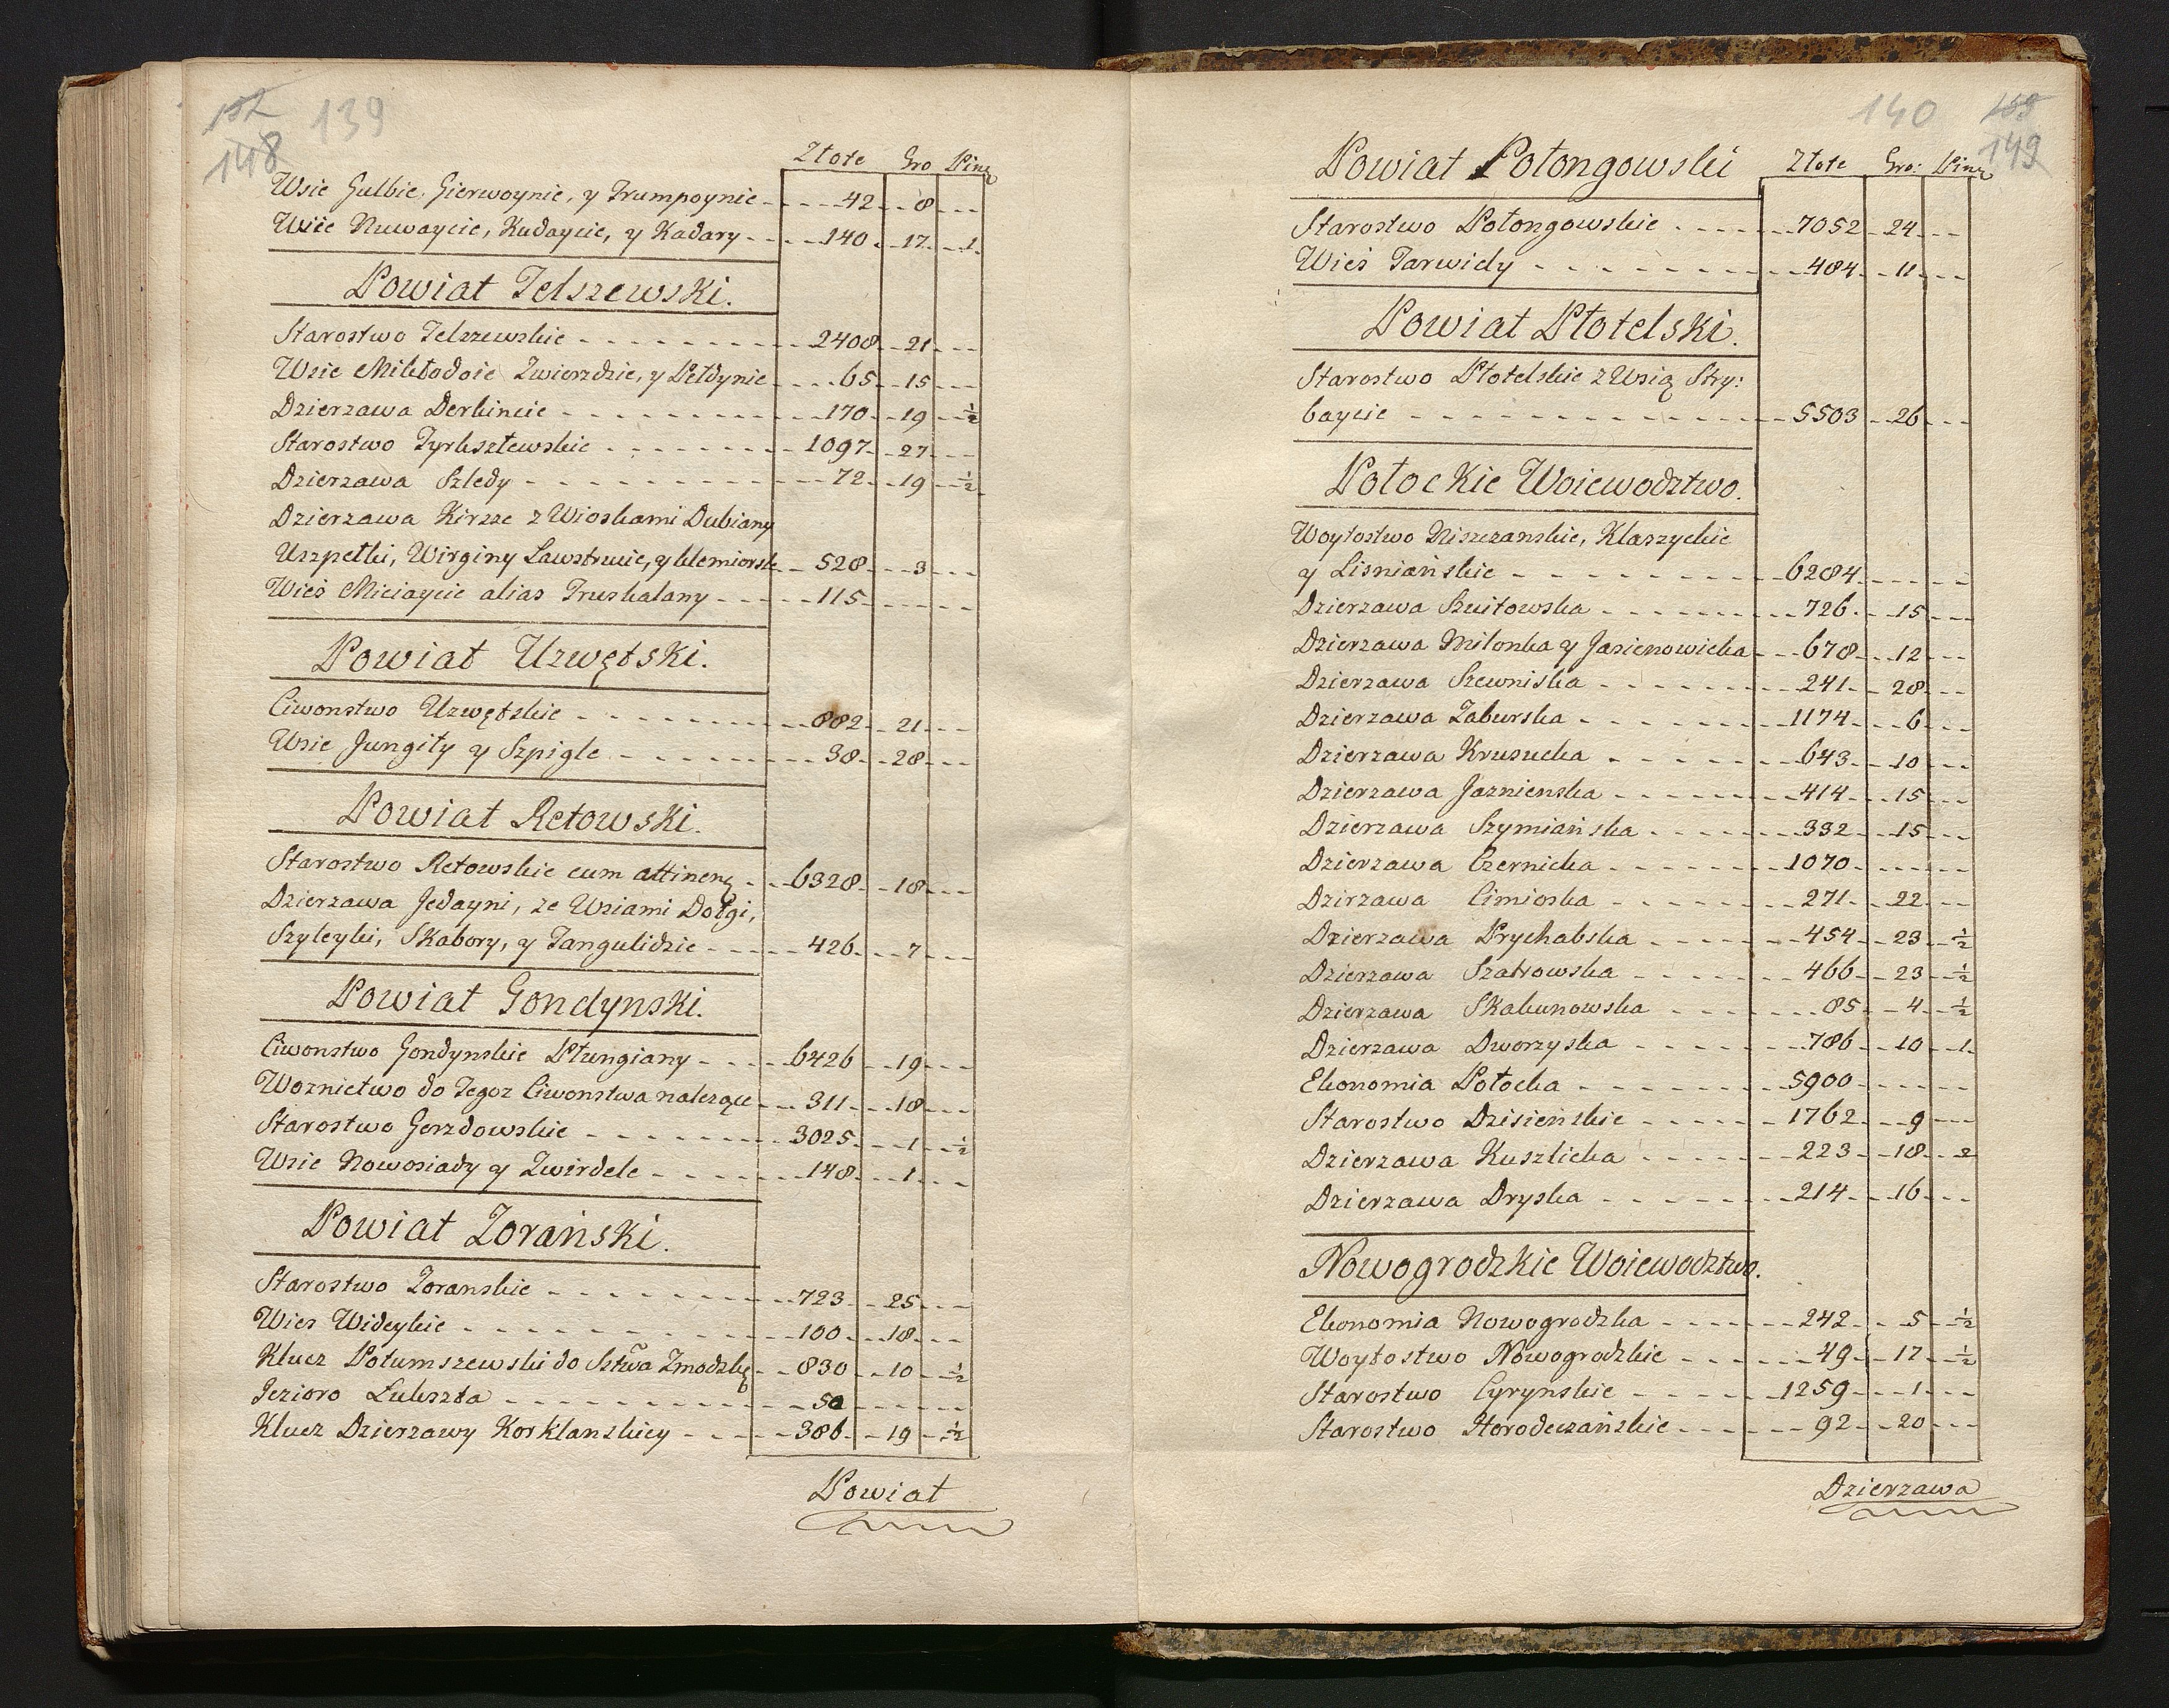 152 139
148
Złote Gro Pinz
Wsie Gulbie, Gierwoynie, y Trumpoynie 42 8
Wsie Nuwaycie, Kudaycie, y Kadary 140 17 1
Powiat Telszewski.
Starostwo Telszewskie 2408 21
Wsie Mikłodoie Zwierzdzie, y Pełdynie 65 15
Dzierzawa Derkincie 170 19 ½
Starostwo Tyrkszlewskie 1097 27
Dzierzawa Szledy 72 19 ½
Dzierzawa Kirsze z Wioskami Dubiany
Uszpelki, Wirginy Lawstrucie, y 528 3
Wieś Miciaycie alias Truskalany 115
Powiat Uzwętski.
Ciwonstwo Uzwętskie 882 21
Wsie Jungity y Szpigle 38 28
Powiat Retowski.
Starostwo Retowskie cum attinen 6328 18
Dzierzawa Jedayni, ze Wsiami Dołgi,
Szyleyki, Skabory, y Tangulidzie 426 7
Powiat Gondynski.
Ciwonstwo Gondynskie Płungiany 6426 19
Woznictwo do Tegoz Ciwonstwa nalezące 311 18
Starostwo Gorzdowskie 3025 1 ½
Wsie Nowosiady y Zwirdele 148 1
Powiat Zorański.
Starostwo Zoranskie 723 25
Wies Wideykie 100 18
Klucz Potumszewski do Sztwa Zmodzkę 830 10 ½
Jezioro Łukszta 50
Klucz Dzierzawy Korklanskiey 386 19 ½
Powiat
140 153
149
Powiat Połongowski Złote Gro: Pinz
Starostwo Połongowskie 7052 24
Wieś Tarwidy 484 11
Powiat Płotelski.
Starostwo Płotelskie z Wsią Stry:
baycie 5503 26
Połockie Woiewodztwo.
Woytostwo Niszczanskie, Klaszyckie
y Lisniańskie 6284
Dzierzawa Szuitowska 726 15
Dzierzawa Milonka y Jasienowicka 678 12
Dzierzawa Szewniska 241 28
Dzierzawa Zaburska 1174 6
Dzierzawa Krusucka 643 10
Dzierzawa Jaznienska 414 15
Dzierzawa Szymiańska 332 15
Dzierzawa Czernicka 1070
Dzirzawa Cimioska 271 22
Dzierzawa Prychabska 454 23 ½
Dzierzawa Szatrowska 466 23 ½
Dzierzawa Skabunowska 85 4 ½
Dzierzawa Dworzyska 786 10 1
Ekonomia Połocka 5900
Starostwo Dzisieńskie 1762 9
Dzierzawa Kuszlicka 223 18 2
Dzierzawa Dryska 214 16
Nowogrodzkie Woiewodztwo.
Ekonomia Nowogrodzka 242 5 ½
Woytostwo Nowogrodzkie 49 17 ½
Starostwo Cyryńskie 1259 1
Starostwo Horodeczańskie 92 20
Dzierzawa